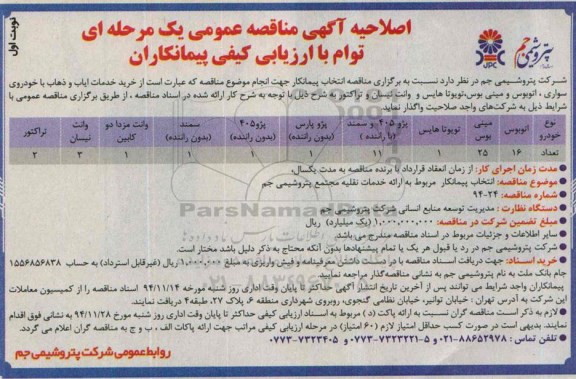 نوبت اول
اصلاحیه آگهی مناقصه عمومی یک مرحله ای
توام با ارزیابی کیفی پیمانکاران
پتروشیمی جم
JPC
شرکت پتروشیمی جم در نظر دارد نسبت به برگزاری مناقصه انتخاب پیمانکار جهت انجام موضوع مناقصه که عبارت است از خرید خدمات ایاب و ذهاب با خودروی
سواری ، اتوبوس و مینی بوس،تویوتا هایس و وانت نیسان و تراکتور به شرح ذیل با توجه به شرح کار ارائه شده در اسناد مناقصه ، از طریق برگزاری مناقصه عمومی با
شرایط ذیل به شرکت‌های واجد صلاحیت واگذار نماید
نوع خودرو اتوبوس مینی بوس تویوتا هایس پژو ۴۰۵ و سمند (با راننده) پژو پارس (بدون راننده) پژو۴۰۵ (بدون راننده) سمند (بدون راننده) وانت مزدا دو کابین وانت نیسان تراکتور
تعداد ۱۶ ۲۵ ۱ ۱۱ ۱ ۱ ۱ ۱ ۳ ۲
مدت زمان اجرای کار: از زمان انعقاد قرارداد با برنده مناقصه به مدت یکسال.
موضوع مناقصه: انتخاب پیمانکار مربوط به ارائه خدمات نقلیه مجتمع پتروشیمی جم
شماره مناقصه: ۲۴-۹۴
دستگاه نظارت : مدیریت توسعه منابع انسانی شرکت پتروشیمی جم
مبلغ تضمین شرکت در مناقصه: ۱,۰۰۰,۰۰۰,۰۰۰ (یک میلیارد) ریال
سایر اطلاعات و جزئیات مربوط در اسناد مناقصه مندرج می باشد.
شرکت پتروشیمی جم در رد یا قبول هر یک یا تمام پیشنهادها بدون آنکه محتاج به ذکر دلیل باشد مختار است.
خرید اسناد: جهت دریافت اسناد مناقصه با در دست داشتن معرفینامه و فیش واریزی به مبلغ ریال (غیرقابل استرداد) به حساب ۱۵۵۶۸۵۶۸۳۸
جام بانک ملت به نام پتروشیمی جم به نشانی مناقصه‌گذار مراجعه نمایید.
پیمانکاران واجد شرایط می توانند پس از آخرین تاریخ انتشار آگهی حداکثر تا پایان وقت اداری روز شنبه مورخه ۹۴/۱۱/۲ اسناد مناقصه را از کمیسیون معاملات
این شرکت به آدرس تهران : خیابان توانیر، خیابان نظامی گنجوی، روبروی شهرداری منطقه ۶، پلاک ۲۷، طبقه۴ دریافت نمایند.
لازم به ذکر است مناقصه گران نسبت به ارائه پاکت (د ) مربوط به اسناد ارزیابی کیفی حداکثر تا پایان وقت اداری روز شنبه مورخ ۹۴/۱۱/۲۸ به نشانی فوق اقدام
نمایند. بدیهی است در صورت کسب حداقل امتیاز لازم (۶۰ امتیاز) در مرحله ارزیابی کیفی مراتب جهت ارائه پاکات الف ، ب و ج به مناقصه گران اعلام می گردد.
تلفن تماس : ۰۲۱-۸۸۶۵۲۹۷۸ و ۵-۰۷۷۳-۷۳۲۳۲۲۱ و ۰۷۷۳-۷۳۲۳۴۰۵
روابط عمومی شرکت پتروشیمی جم
ParsNamadData